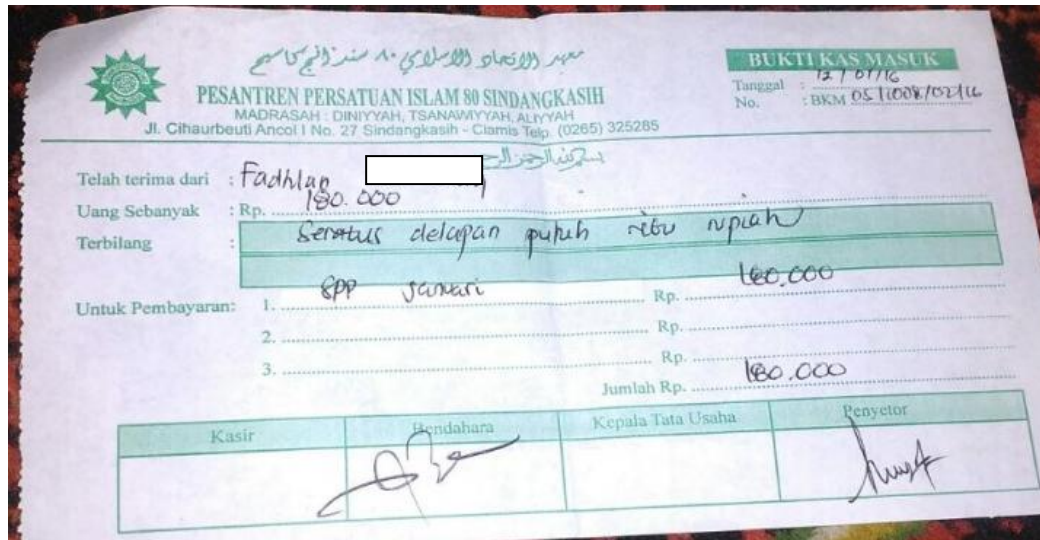 معهد الاتحاد الاسلامي ٨٠ سندانج كاسيح
BUKTI KAS MASUK
PESANTREN PERSATUAN ISLAM 80 SINDANGKASIH
MADRASAH : DINIYYAH, TSANAWIYYAH, ALIYYAH
Jl. Cihaurbeuti Ancol I No. 27 Sindangkasih - Ciamis Telp. (0265) 325285
Tanggal : 12 / 01/16
No. : BKM 05 /1008/02/16
بسم الله الرحمن الرحيم
Telah terima dari : Fadhlan
Uang Sebanyak : Rp. 180.000
Terbilang : Seratus delapan puluh ribu rupiah
Untuk Pembayaran: 1. SPP Januari Rp. 180.000
2. Rp.
3. Rp.
Jumlah Rp. 180.000
Kasir Bendahara Kepala Tata Usaha Penyetor